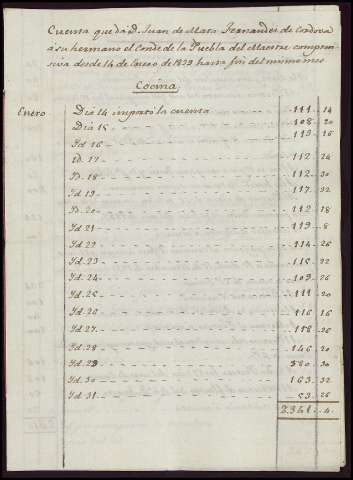 Cuenta que da D. Juan de Mata Fernandez de Cordova
a su hermano el Conde de la Puebla del Maestre compren-
siva desde 14 de Enero de 1839 hasta fin del mismo mes
Cocina
Enero Dia 14 importó la cuenta 111 14
Dia 15 108 20
Id 16 113 16
Id. 17 112 24
Id. 18 112 30
Id 19 117 32
Id. 20 112 18
Id 21 119 8
Id 22 114 26
Id. 23 115 32
Id. 24 109 26
Id. 25 111 20
Id. 26 116 16
Id. 27 118 26
Id. 28 146 20
Id. 29 380 30
Id. 30 163 32
Id. 31 53 26
2.341 4